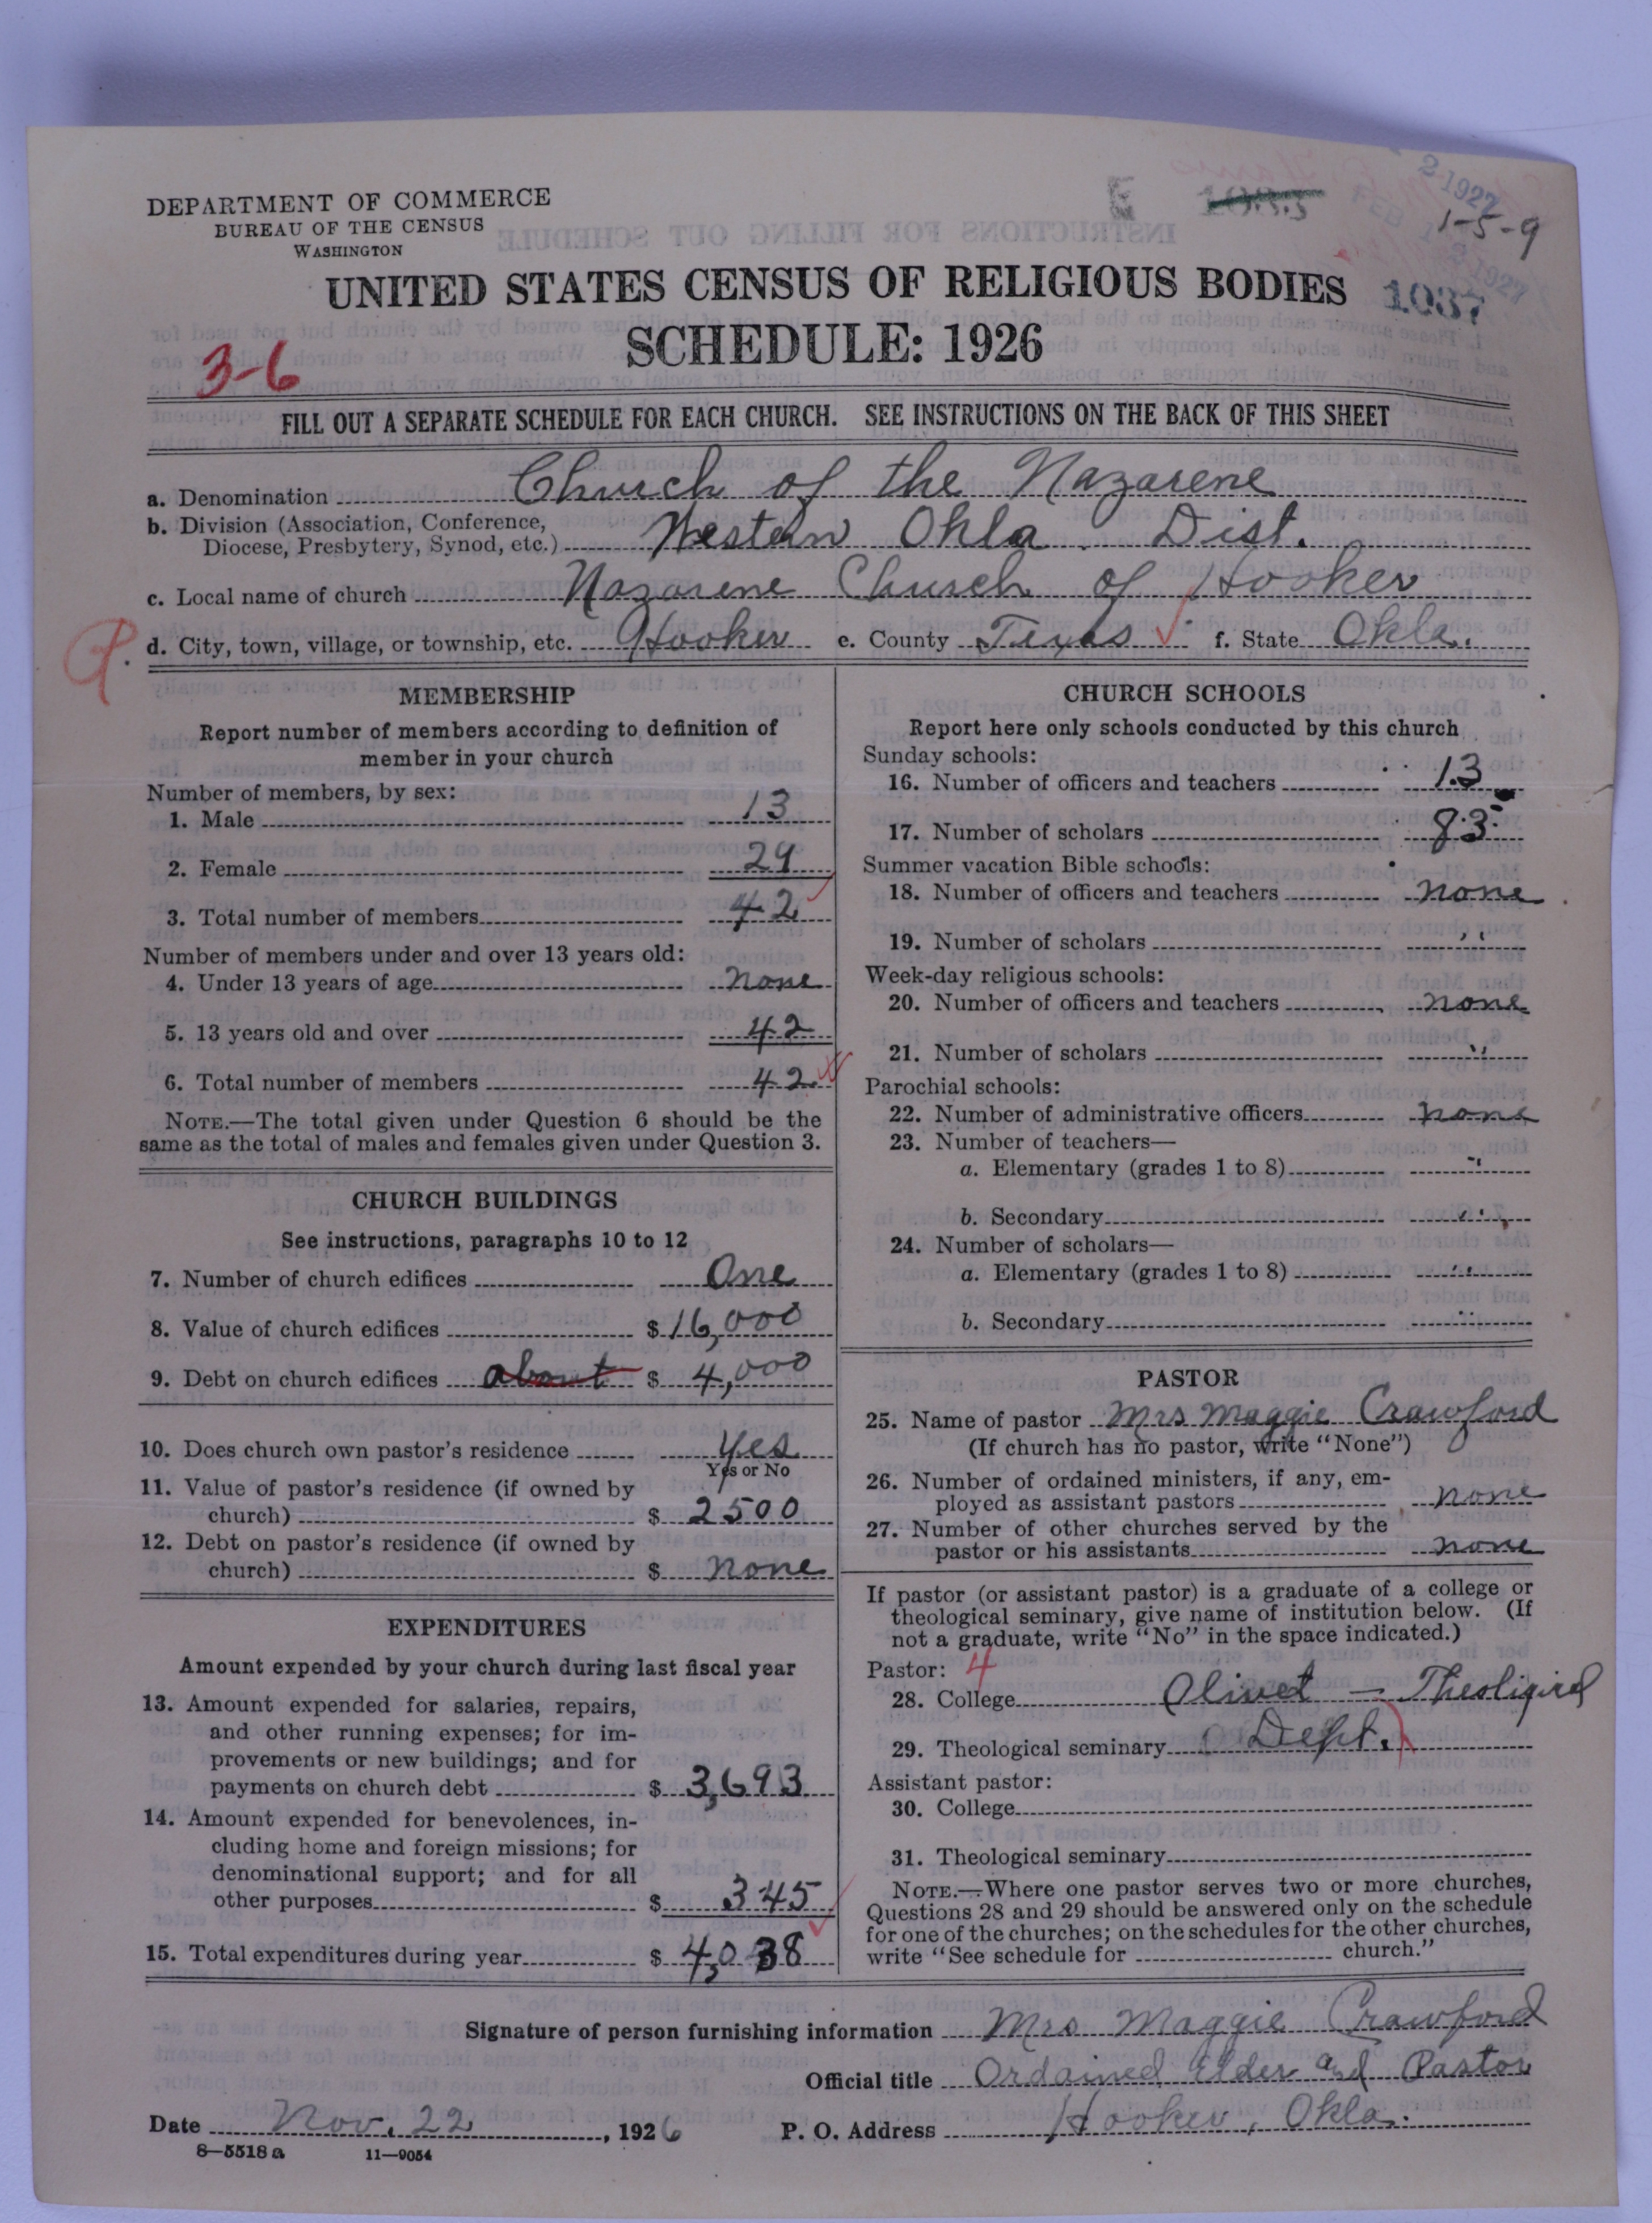 DEPARTMENT OF COMMERCE
BUREAU OF THE CENSUS
WASHINGTON
1-5-9
UNITED STATES CENSUS OF RELIGIOUS BODIES
1037
SCHEDULE: 1926
3-6
FILL OUT A SEPARATE SCHEDULE FOR EACH CHURCH. SEE INSTRUCTIONS ON THE BACK OF THIS SHEET
a. Denomination Church of the Nazarene
b. Division (Association, Conference,
Diocese, Presbytery, Synod, etc.) Western Okla. Dist.
c. Local name of church Nazarene Church of Hooker
d. City, town, village, or township, etc. Hooker e. County Texas f. State Okla.
MEMBERSHIP
Report number of members according to definition of
member in your church
Number of members, by sex:
1. Male 13
2. Female 29
3. Total number of members 42
Number of members under and over 13 years old:
4. Under 13 years of age none
5. 13 years old and over 42
6. Total number of members 42
NOTE.—The total given under Question 6 should be the
same as the total of males and females given under Question 3.
CHURCH BUILDINGS
See instructions, paragraphs 10 to 12
7. Number of church edifices One
8. Value of church edifices $ 16,000
9. Debt on church edifices about $ 4,000
10. Does church own pastor's residence yes
Yes or No
11. Value of pastor's residence (if owned by
church) $ 2500
12. Debt on pastor's residence (if owned by
church) $ none
EXPENDITURES
Amount expended by your church during last fiscal year
13. Amount expended for salaries, repairs,
and other running expenses; for im-
provements or new buildings; and for
payments on church debt $ 3,693
14. Amount expended for benevolences, in-
cluding home and foreign missions; for
denominational support; and for all
other purposes $ 345
15. Total expenditures during year $ 4,038
CHURCH SCHOOLS
Report here only schools conducted by this church
Sunday schools:
16. Number of officers and teachers 13
17. Number of scholars 83
Summer vacation Bible schools:
18. Number of officers and teachers none
19. Number of scholars "
Week-day religious schools:
20. Number of officers and teachers none
21. Number of scholars "
Parochial schools:
22. Number of administrative officers none
23. Number of teachers—
a. Elementary (grades 1 to 8) "
b. Secondary "
24. Number of scholars—
a. Elementary (grades 1 to 8) "
b. Secondary "
PASTOR
25. Name of pastor Mrs Maggie Crawford
(If church has no pastor, write "None")
26. Number of ordained ministers, if any, em-
ployed as assistant pastors none
27. Number of other churches served by the
pastor or his assistants none
If pastor (or assistant pastor) is a graduate of a college or
theological seminary, give name of institution below. (If
not a graduate, write "No" in the space indicated.)
Pastor: 4
28. College Olivet — Theoligical
29. Theological seminary Dept.
Assistant pastor:
30. College
31. Theological seminary
NOTE.—Where one pastor serves two or more churches,
Questions 28 and 29 should be answered only on the schedule
for one of the churches; on the schedules for the other churches,
write "See schedule for church."
Signature of person furnishing information Mrs Maggie Crawford
Official title Ordained Elder and Pastor
Date Nov. 22, 1926 P. O. Address Hooker, Okla.
8—5518a 11—9054